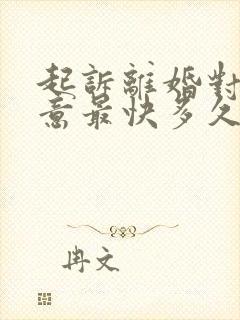 起訴離婚對
意最快多久
冉文